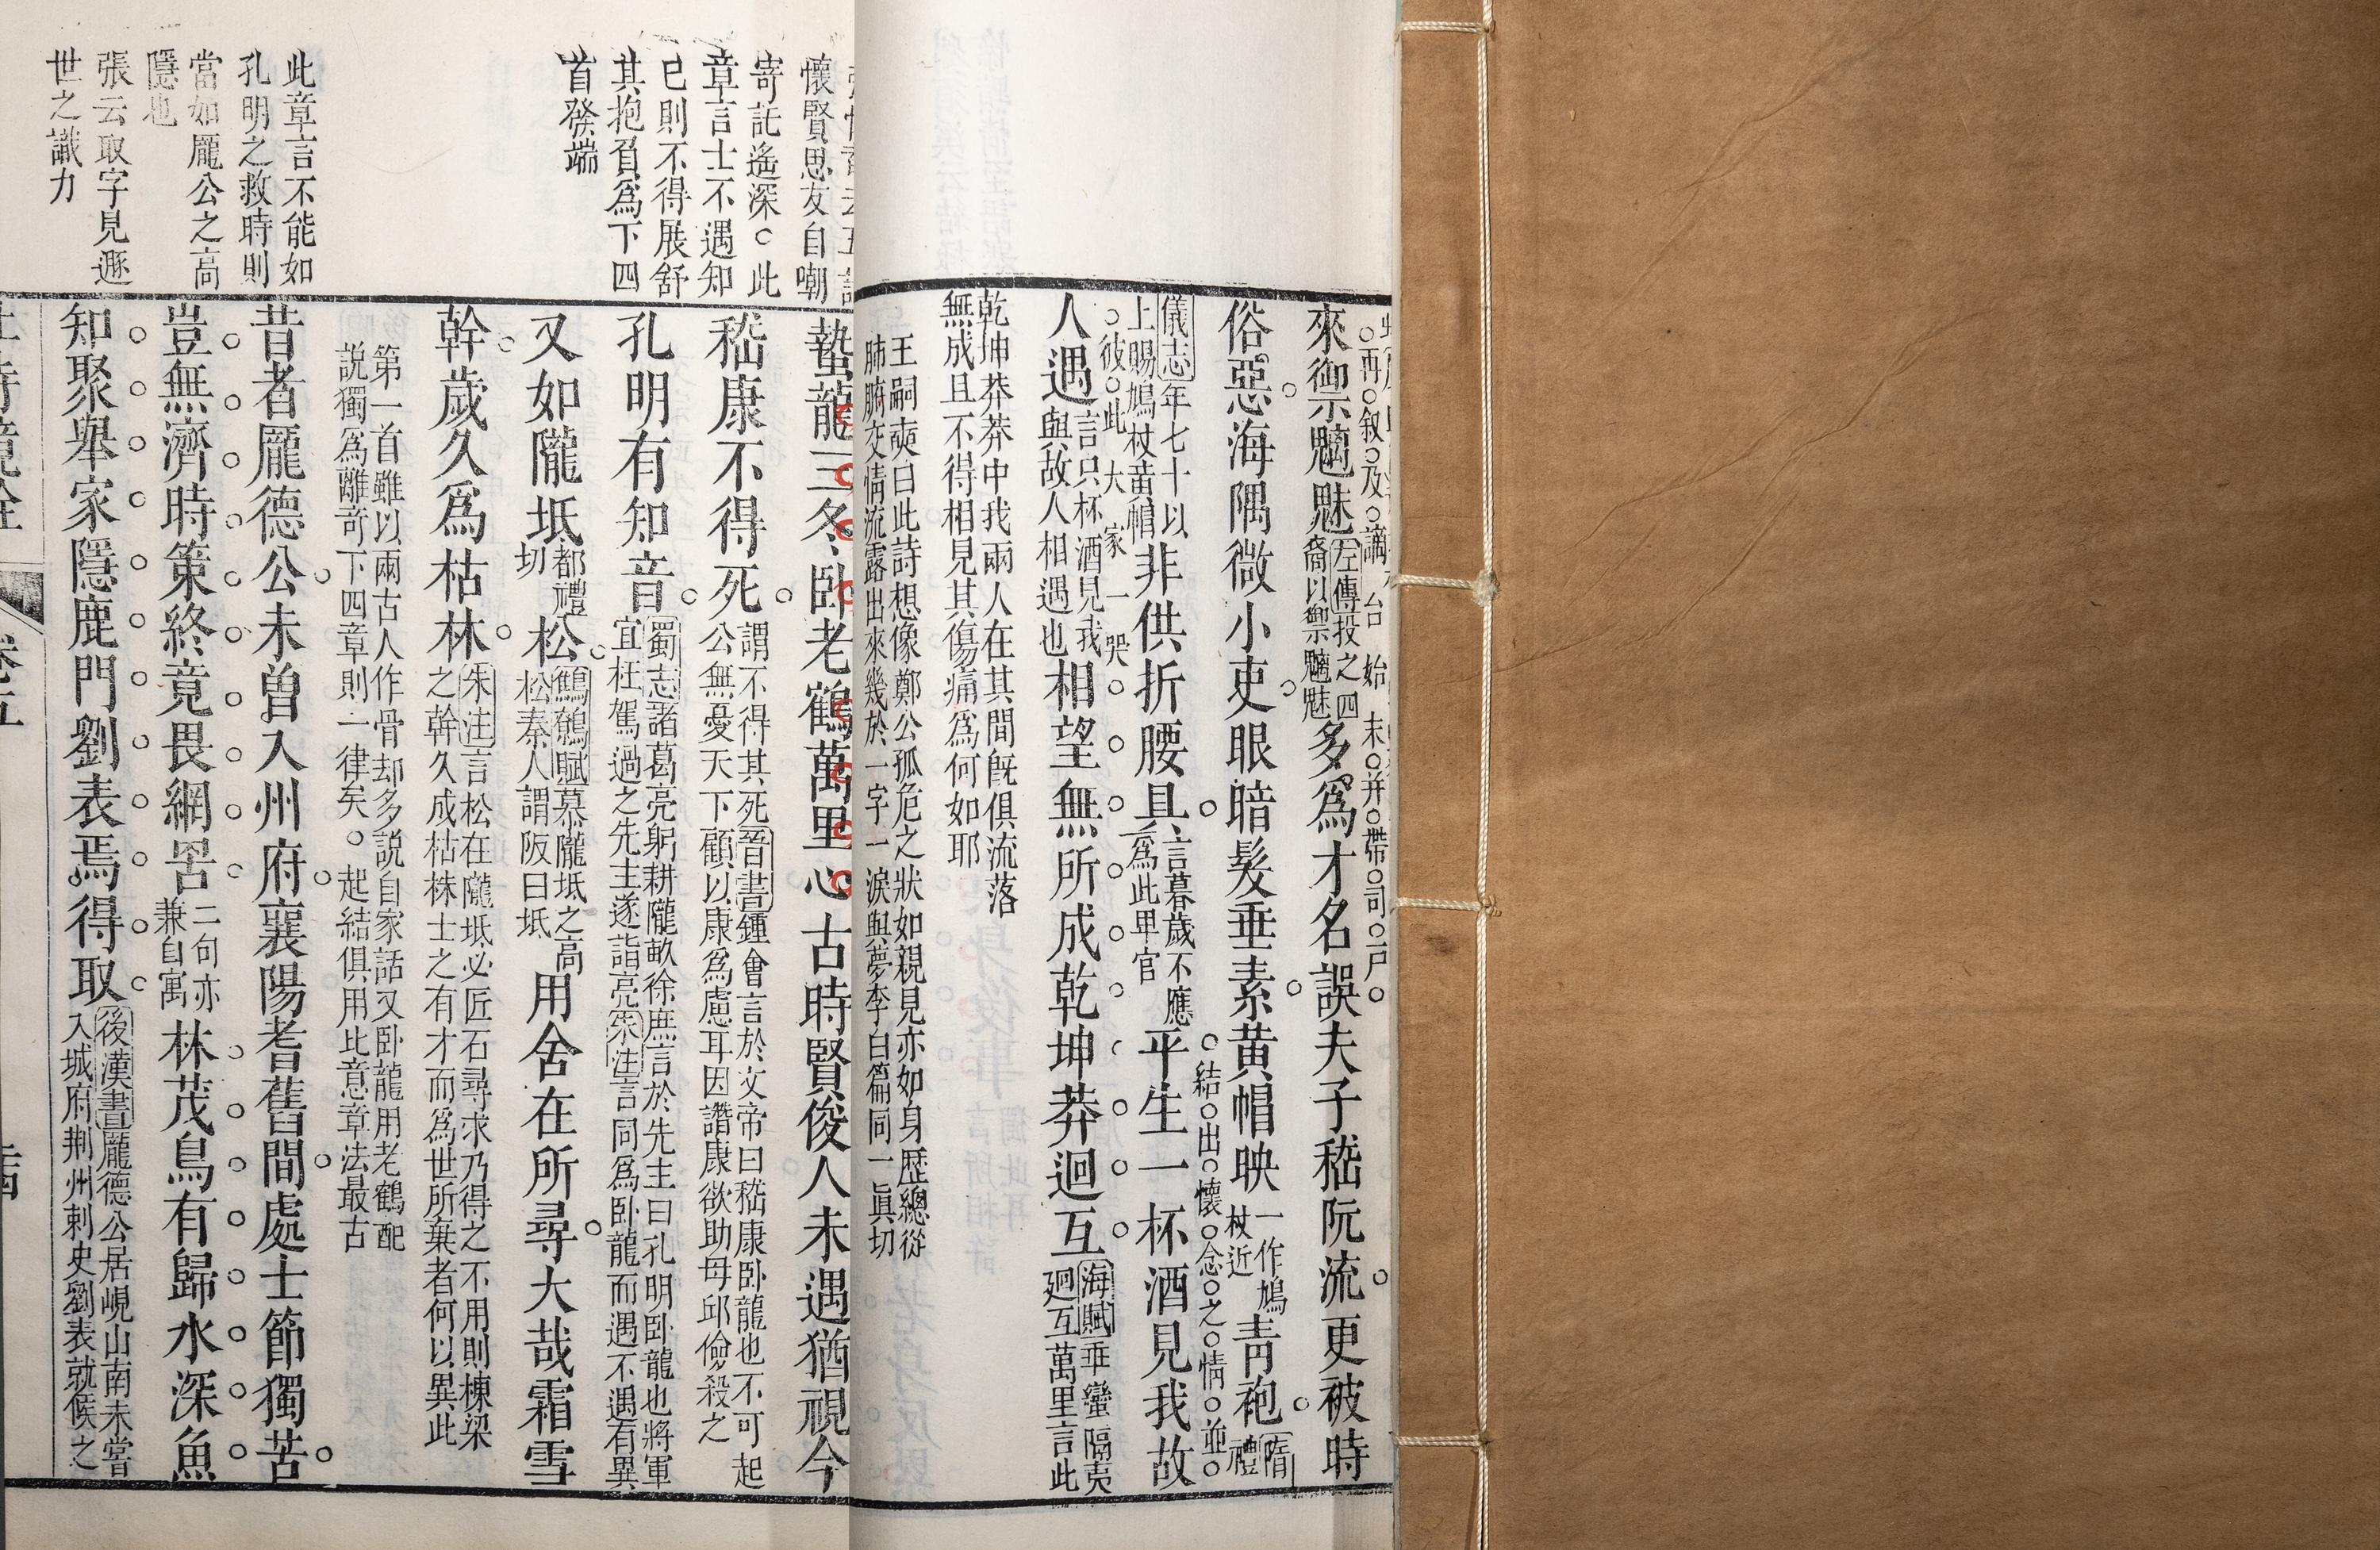 來禦魑魅左傳投之四裔以禦魑魅多為才名誤夫子嵇阮流更被時
俗惡海隅微小吏眼暗髮垂素黄帽映一作鳩杖近青袍隋禮
儀志年七十以上賜鳩杖黄帽非供折腰具言暮歲不應為此卑官平生一杯酒見我故
人遇言只杯酒見我與故人相遇也相望無所成乾坤莽迴互海賦乖蠻隔夷廻互萬里言此
乾坤莽莽中我兩人在其間既俱流落
無成且不得相見其傷痛為何如耶
王嗣奭曰此詩想像鄭公孤危之狀如親見亦如身歷總從
肺腑交情流露出來幾於一字一淚與夢李白篇同一眞切
結出懷念之情並
彼此大家一哭
懷賢思友自嘲
寄託遙深○此
章言士不遇知
已則不得展舒
其抱負為下四
首發端
蟄龍三冬卧老鶴萬里心古時賢俊人未遇猶視今
嵇康不得死謂不得其死晉書鍾會言於文帝曰嵇康卧龍也不可起公無憂天下顧以康為慮耳因譖康欲助毋邱儉殺之
孔明有知音蜀志諸葛亮躬耕隴畝徐庶言於先主曰孔明卧龍也將軍宜枉駕過之先主遂詣亮朱注言同為卧龍而遇不遇有異
又如隴坻都禮切松鸚鵡賦慕隴坻之高松秦人謂阪曰坻用舍在所尋大哉霜雪
幹歲久為枯林朱注言松在隴坻必匠石尋求乃得之不用則棟梁之幹久成枯株士之有才而為世所棄者何以異此
第一首雖以兩古人作骨却多說自家話又卧龍用老鶴配
說獨為離奇下四章則一律矣○起結俱用比意章法最古
此章言不能如
孔明之救時則
當如龐公之高
隱也
張云取字見遯
世之識力
昔者龐德公未曾入州府襄陽耆舊間處士節獨苦
豈無濟時策終竟畏網罟二句亦兼自寓林茂鳥有歸水深魚
知聚舉家隱鹿門劉表焉得取後漢書龐德公居峴山南未嘗入城府荆州刺史劉表就候之